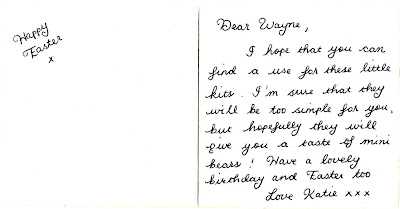 Happy
Easter
x
Dear Wayne,
I hope that you can
find a use for these little
kits. I'm sure that they
will be too simple for you,
but hopefully they will
give you a taste of mini
bears! Have a lovely
birthday and Easter too
Love Katie x x x